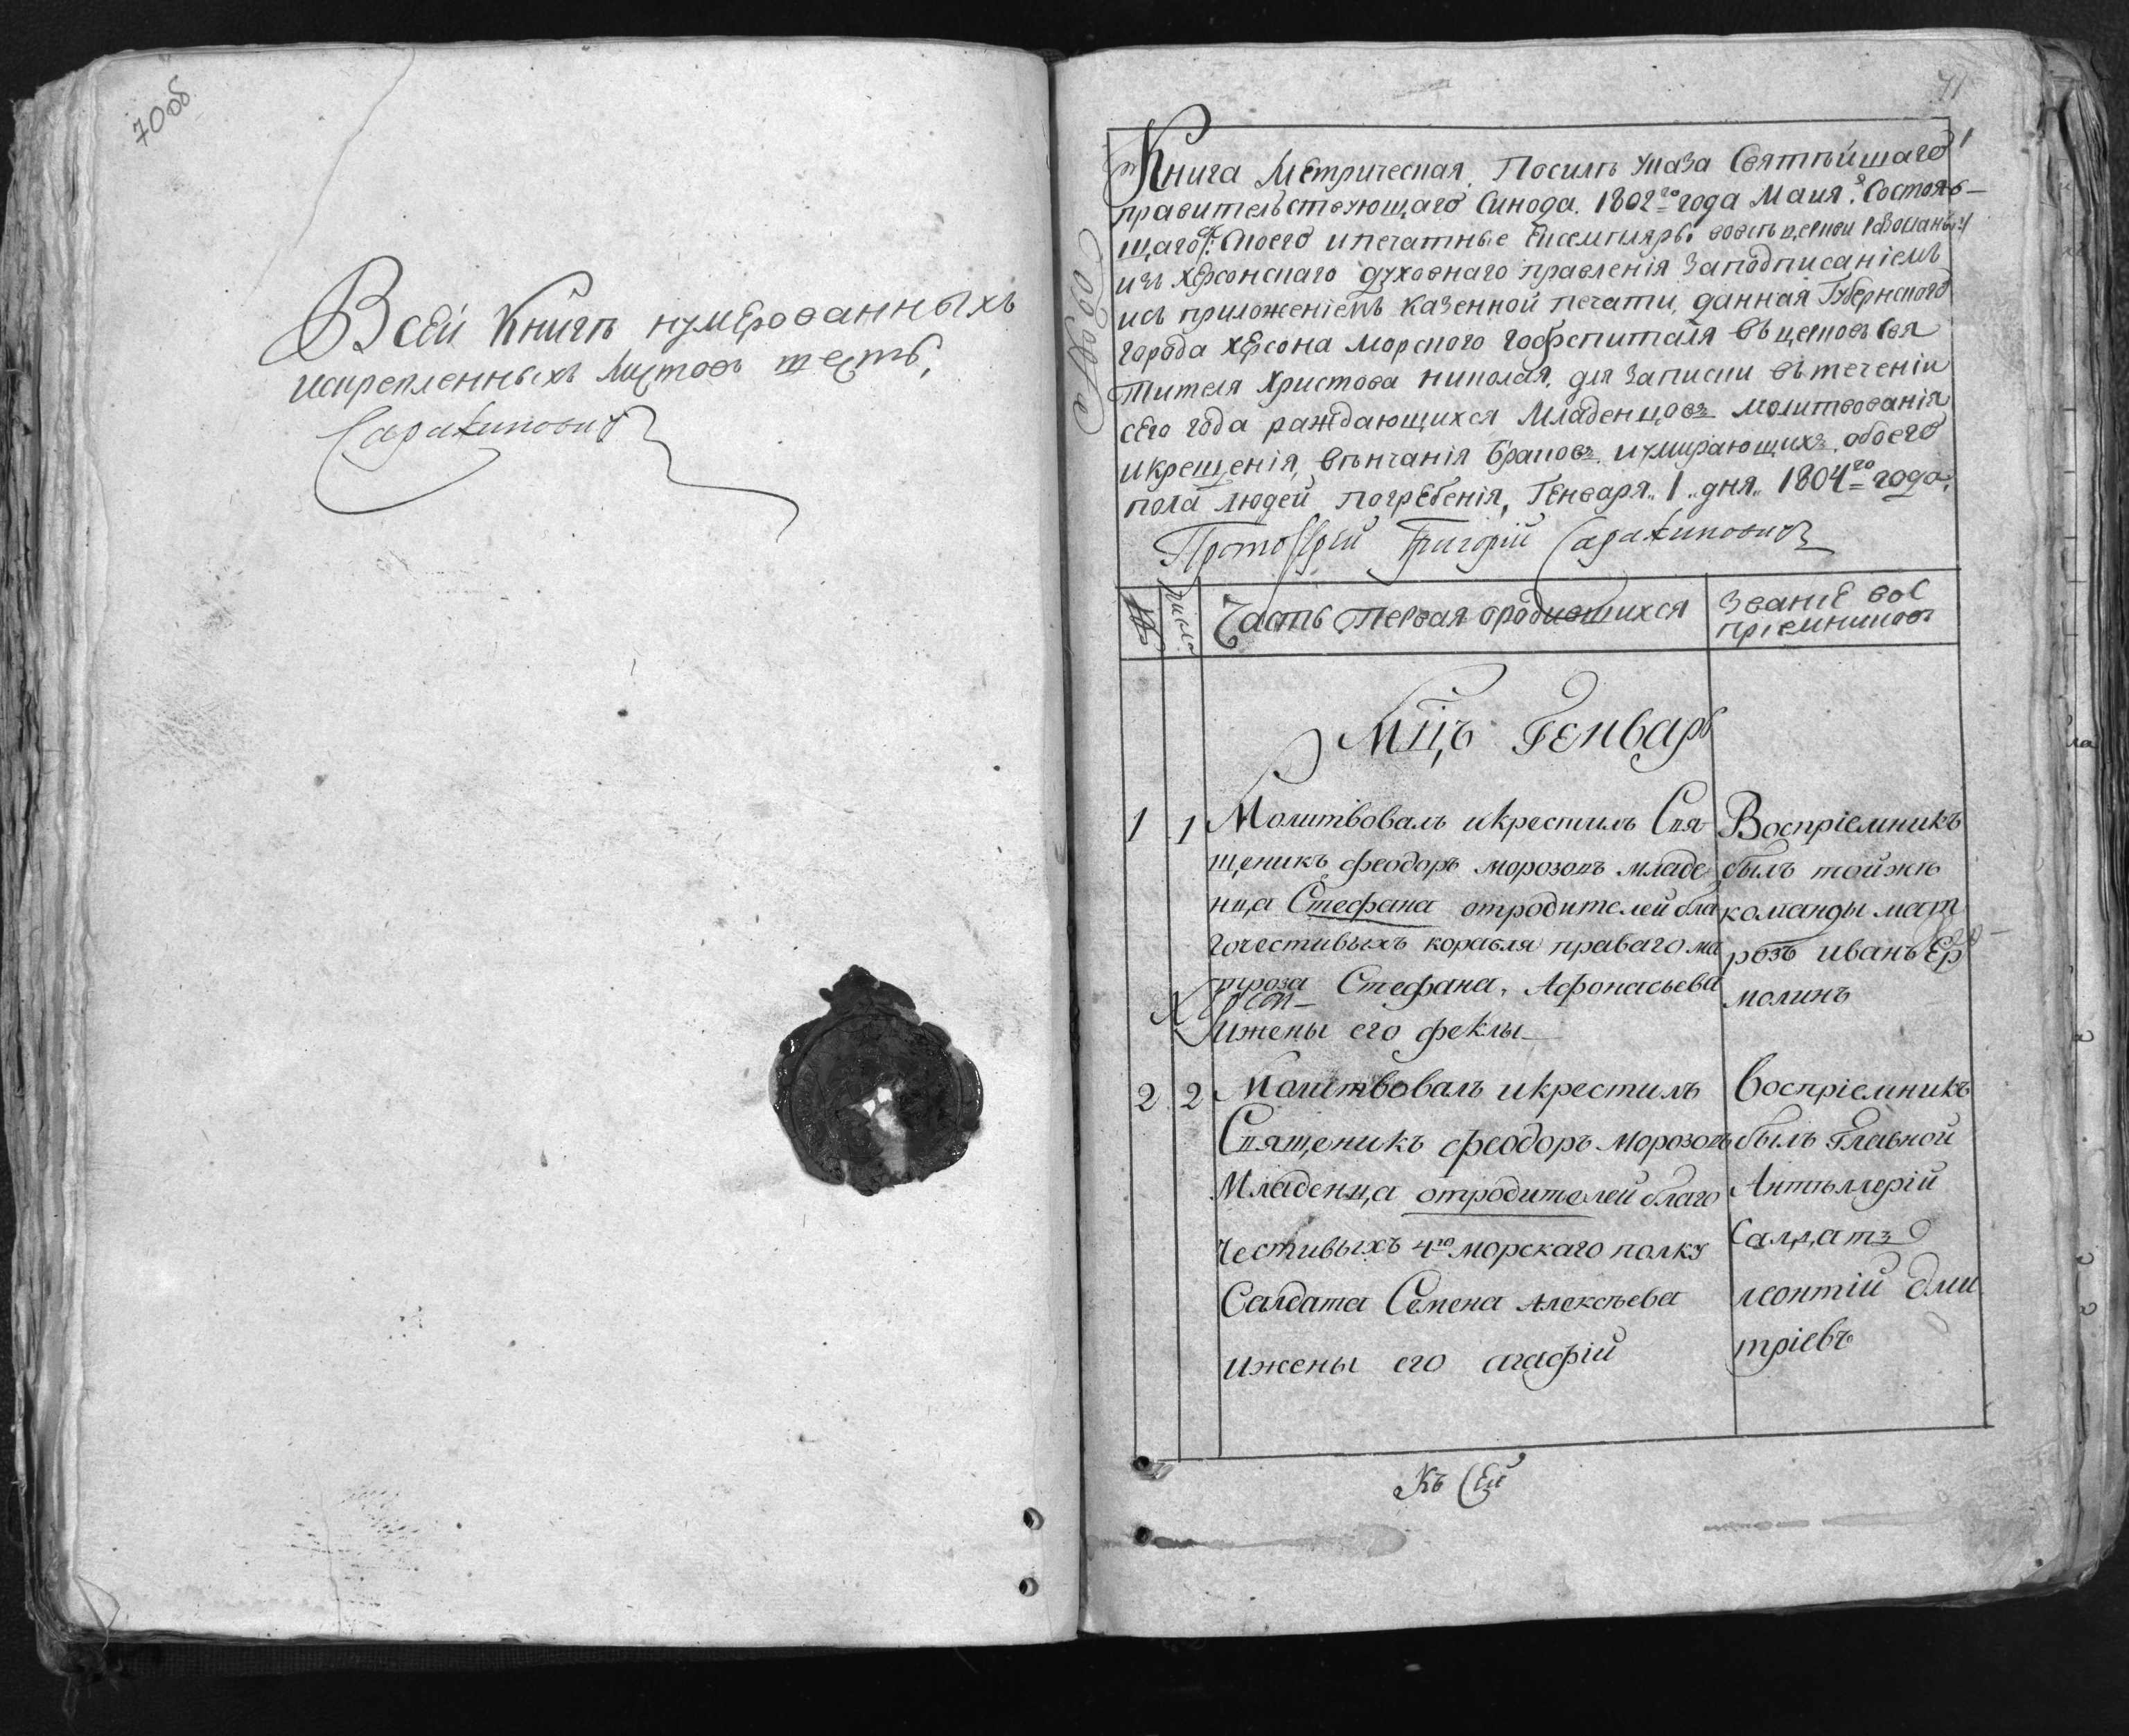 70об
Всей Книгѣ нумерованныхъ
искрепленныхъ листовъ шесть,
Саражиновичъ
71
1
Книга Метрическая. Посилѣ указа Святѣйшаго
правительствующаго Синода. 1802го года Маия. Состояв-
щаго: Коего ипечатные Ексемпляры вовсѣ церкви
изъ Херсонскаго духовнаго правленія Заподписаніемъ
исъ приложеніемъ казенной печати, данная Губернского
города Херсона Морского гофспиталя въ церковь Свя
тителя Христова николая, для Записки въ теченіи
сего года раждающихся Младенцовъ молитвованія
икрещенія, вѣнчанія браковъ иумирающихъ обоего
пола людей погребенія, Генваря 1 дня 1804го года.
Протоіерей Григорій Саражиновичъ
число Часть первая ородившихся Званіе вос
пріемниковъ
Мцъ Генварь
1 1 Молитвовалъ икрестилъ Свя
щеникъ феодоръ морозовъ младе
нца Стефана отродителей бла
гочестивыхъ корабля праваго ма
троза Стефана, Афонасьева
ижены его феклы
Воспріемникъ
былъ тойжѣ
команды мат
розъ иванъ Ер
молинъ
2 2 Молитвовалъ икрестилъ
Священикъ феодоръ морозовъ
Младенца отродителей благо
честивыхъ 4го морскаго полку
Салдата Семена Алексѣева
ижены его агафіи
Воспріемникъ
былъ Главной
Антиллерій
Салдатъ
леонтій дми
тріевъ
Къ Сей